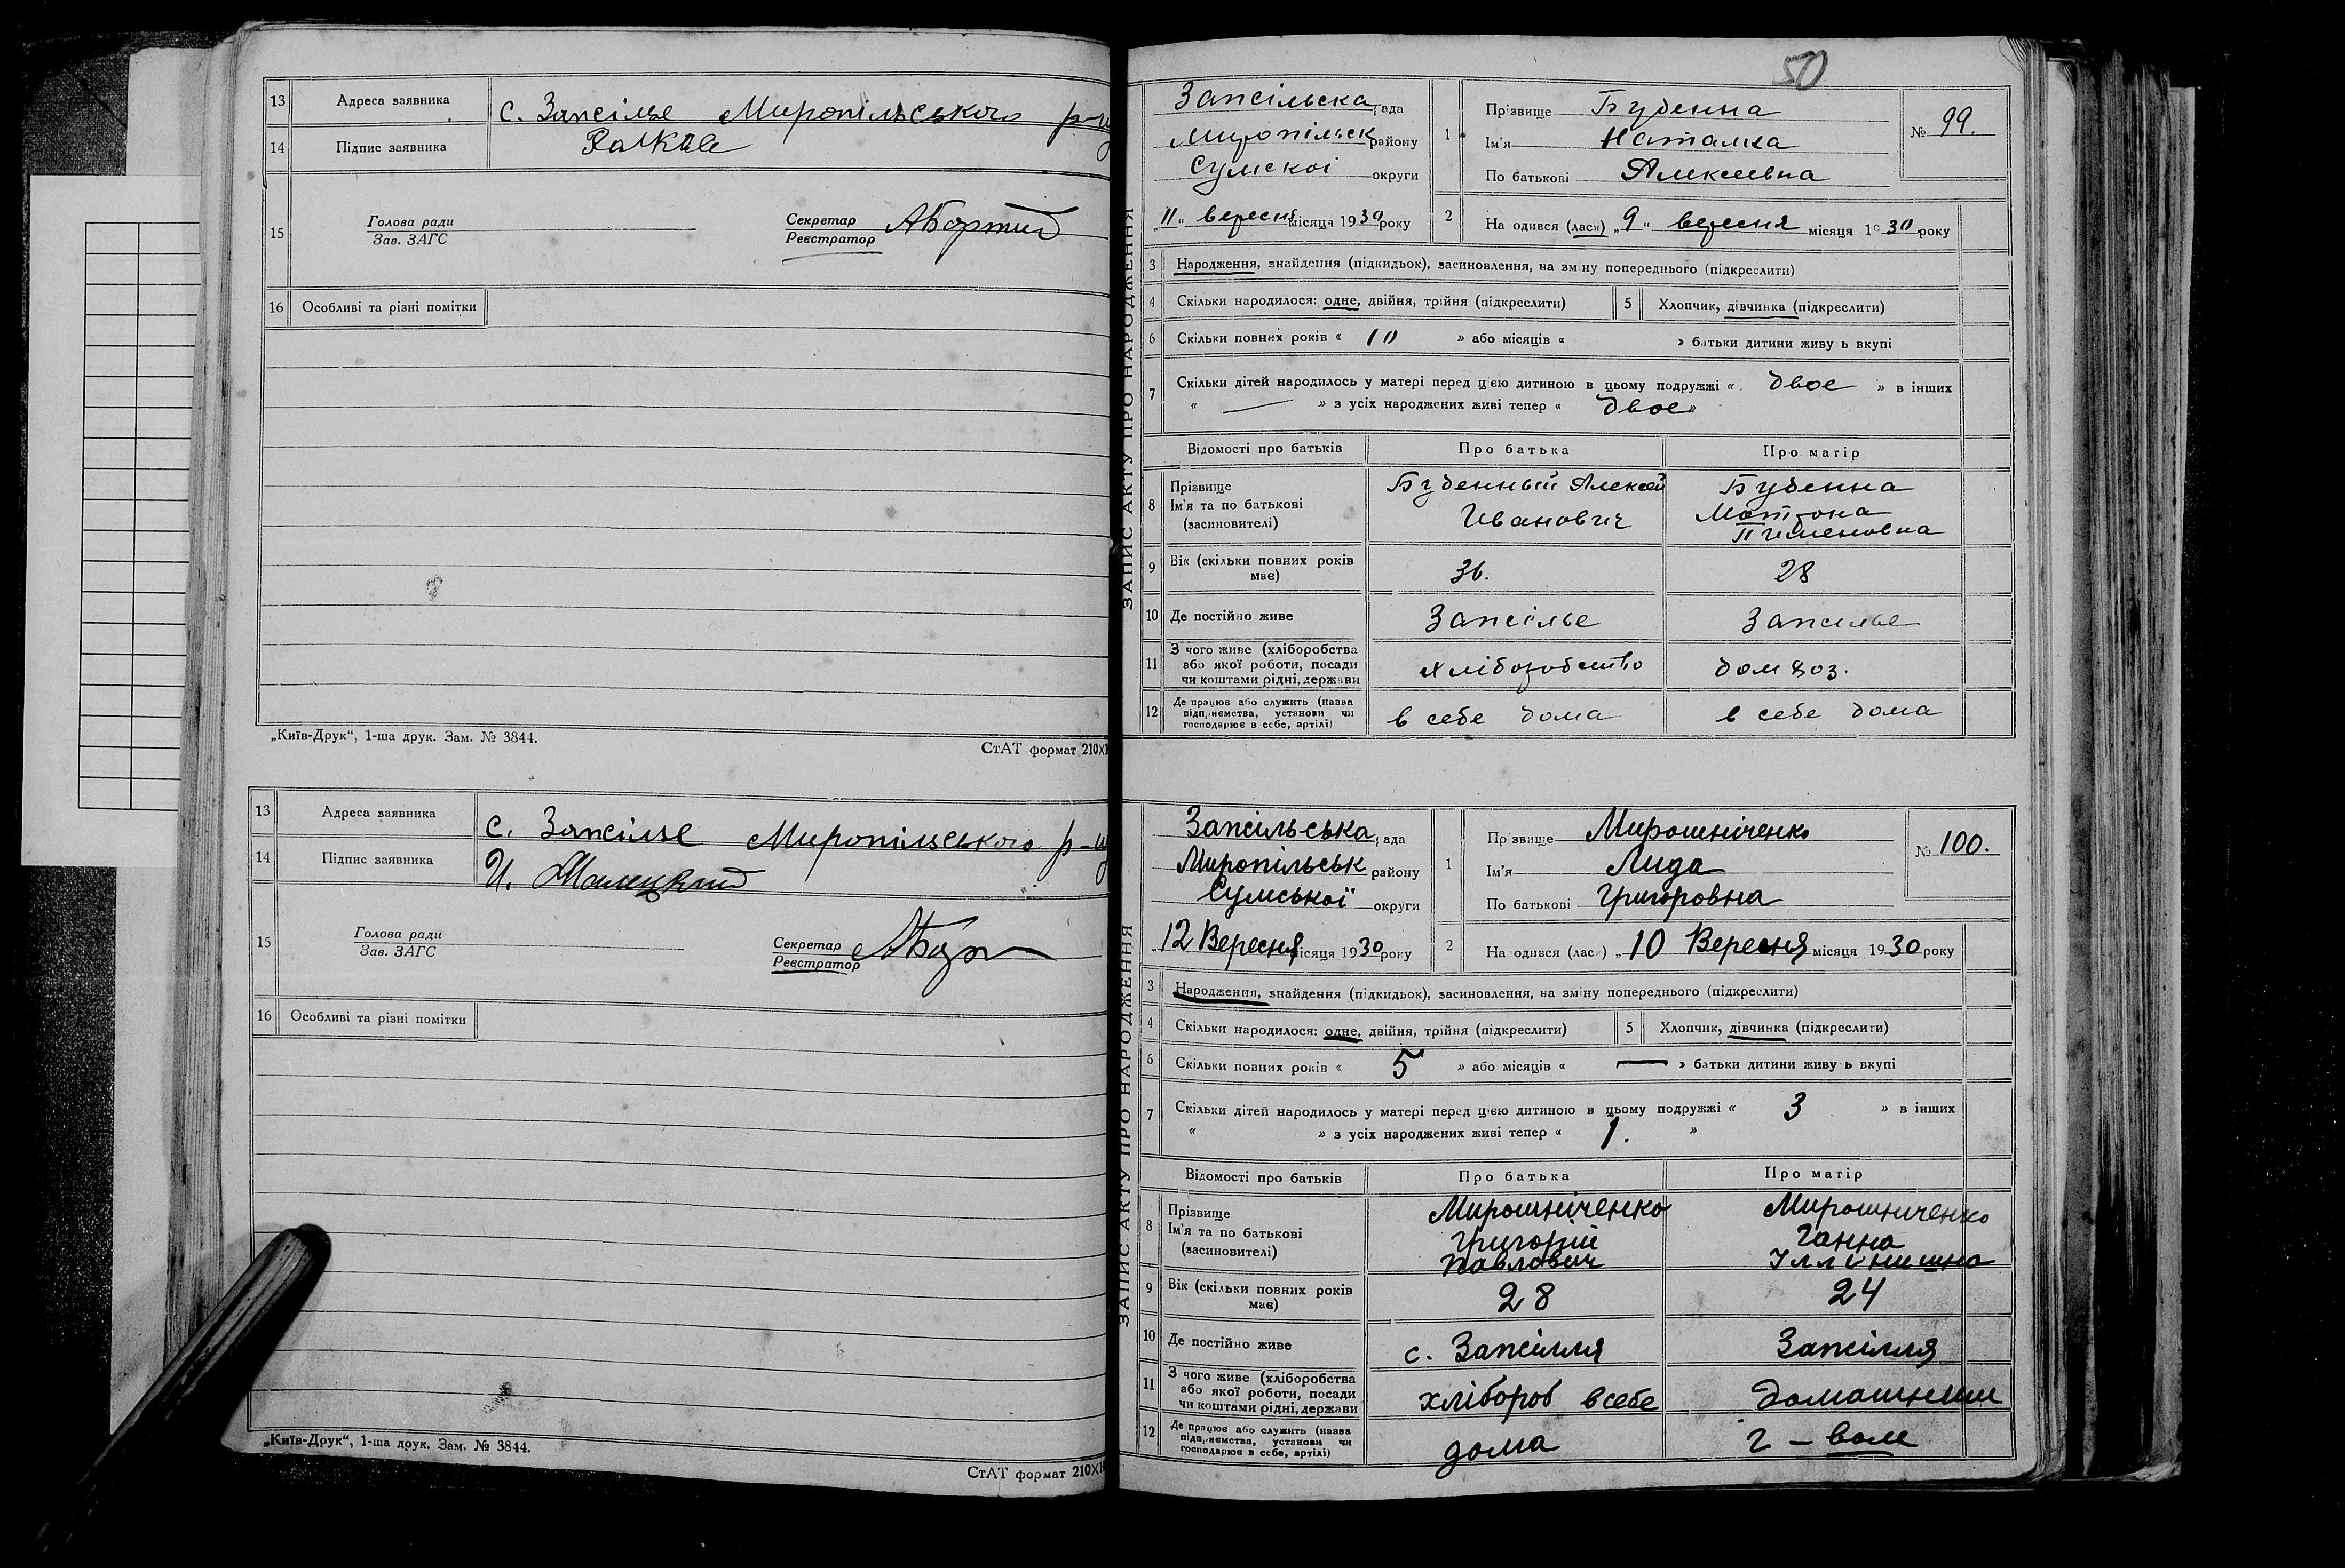 13 Адреса заявника с. Запсілье Миропільського р-ну
14 Підпис заявника
15 Голова ради
Зав. ЗАГС
Секретар
Реєстратор
16 Особливі та різні помітки
„Київ-Друк“, 1-ша друк. Зам. № 3844.
СтАТ формат 210×1
13 Адреса заявника с. Запсілье Миропільського р-ну
14 Підпис заявника И.
15 Голова ради
Зав. ЗАГС
Секретар
Реєстратор
16 Особливі та різні помітки
„Київ-Друк“, 1-ша друк. Зам. № 3844.
СтАТ формат 210×1
50
ЗАПИС АКТУ ПРО НАРОДЖЕННЯ
Запсільска рада
Миропільск району
Сумскоі округи
„11“ вересня місяця 1930 року
1 Прізвище Буденна
Ім'я Наталка
По батькові Алексеевна
№ 99.
2 На одився (лася) „9“ вересня місяця 1930 року
3 Народження, знайдення (підкидьок), засиновлення, на зміну попереднього (підкреслити)
4 Скільки народилося: одне, двійня, трійня (підкреслити) 5 Хлопчик, дівчинка (підкреслити)
6 Скільки повних років « 10 » або місяців « » батьки дитини живу ь вкупі
7 Скільки дітей народилось у матері перед цією дитиною в цьому подружжі « двое » в інших
« — » з усіх народжених живі тепер « двое »
Відомості про батьків Про батька Про матір
8 Прізвище Ім'я та по батькові (засиновителі) Буденный Алексей Иванович Буденна Мотрона Пименовна
9 Вік (скільки повних років має) 36. 28
10 Де постійно живе Запсілье Запсилье
11 З чого живе (хліборобства або якої роботи, посади чи коштами рідні, держави хліборобство дом хоз.
12 Де працює або служить (назва підприємства, установи чи господарює в себе, артілі) в себе дома в себе дома
ЗАПИС АКТУ ПРО НАРОДЖЕННЯ
Запсільська рада
Миропільськ району
Сумської округи
„12 Вересня місяця 1930 року
1 Прізвище Мирошніченко
Ім'я Лида
По батькові Григоровна
№ 100.
2 На одився (лася) „10 Вересня місяця 1930 року
3 Народження, знайдення (підкидьок), засиновлення, на зміну попереднього (підкреслити)
4 Скільки народилося: одне, двійня, трійня (підкреслити) 5 Хлопчик, дівчинка (підкреслити)
6 Скільки повних років « 5 » або місяців « — » батьки дитини живу ь вкупі
7 Скільки дітей народилось у матері перед цією дитиною в цьому подружжі « 3 » в інших
« » з усіх народжених живі тепер « 1. »
Відомості про батьків Про батька Про матір
8 Прізвище Ім'я та по батькові (засиновителі) Мирошніченко Григорій Павлович Мирошниченко Ганна Іллінишна
9 Вік (скільки повних років має) 28 24
10 Де постійно живе с. Запсілля Запсілля
11 З чого живе (хліборобства або якої роботи, посади чи коштами рідні, держави хлібороб в себе домашнеим
12 Де працює або служить (назва підприємства, установи чи господарює в себе, артілі) дома г-вом